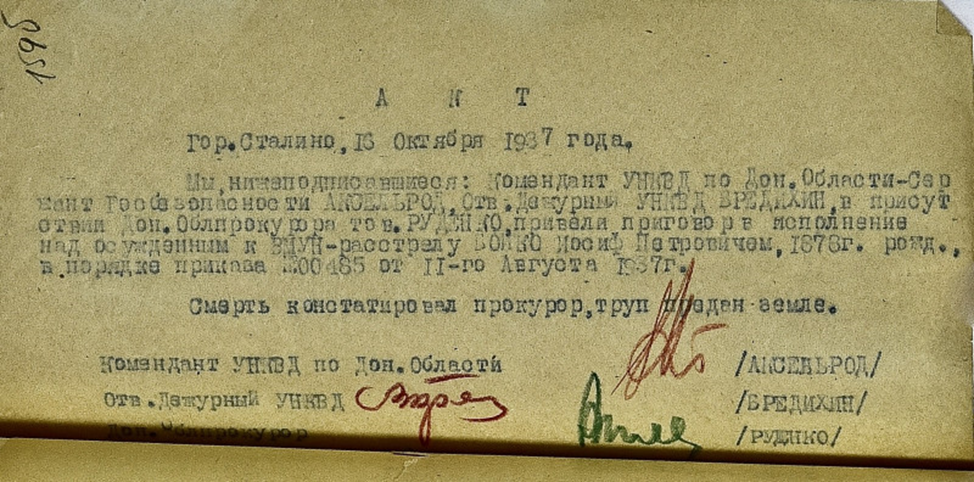 1595
А К Т
Гор.Сталино,16 Октября 1937 года.
Мы,нижеподписавшиеся: Комендант УНКВД по Дон.Области-Сер
жант Госбезопасности АКСЕЛЬРОД,Отв.Дежурный УНКВД БРЕДИХИН,в присут
ствии Дон.Облпрокурора тов.РУДЕНКО,привели приговор в исполнение
над осужденным к ВМУН-расстрелу БОЙКО Иосиф Петровичем,1878г. рожд.,
в порядке приказа №00485 от 11-го Августа 1937г.
Смерть констатировал прокурор,труп предан земле.
Комендант УНКВД по Дон.Области /АКСЕЛЬРОД/
Отв.Дежурный УНКВД /БРЕДИХИН/
Дон.Облпрокурор /РУДЕНКО/